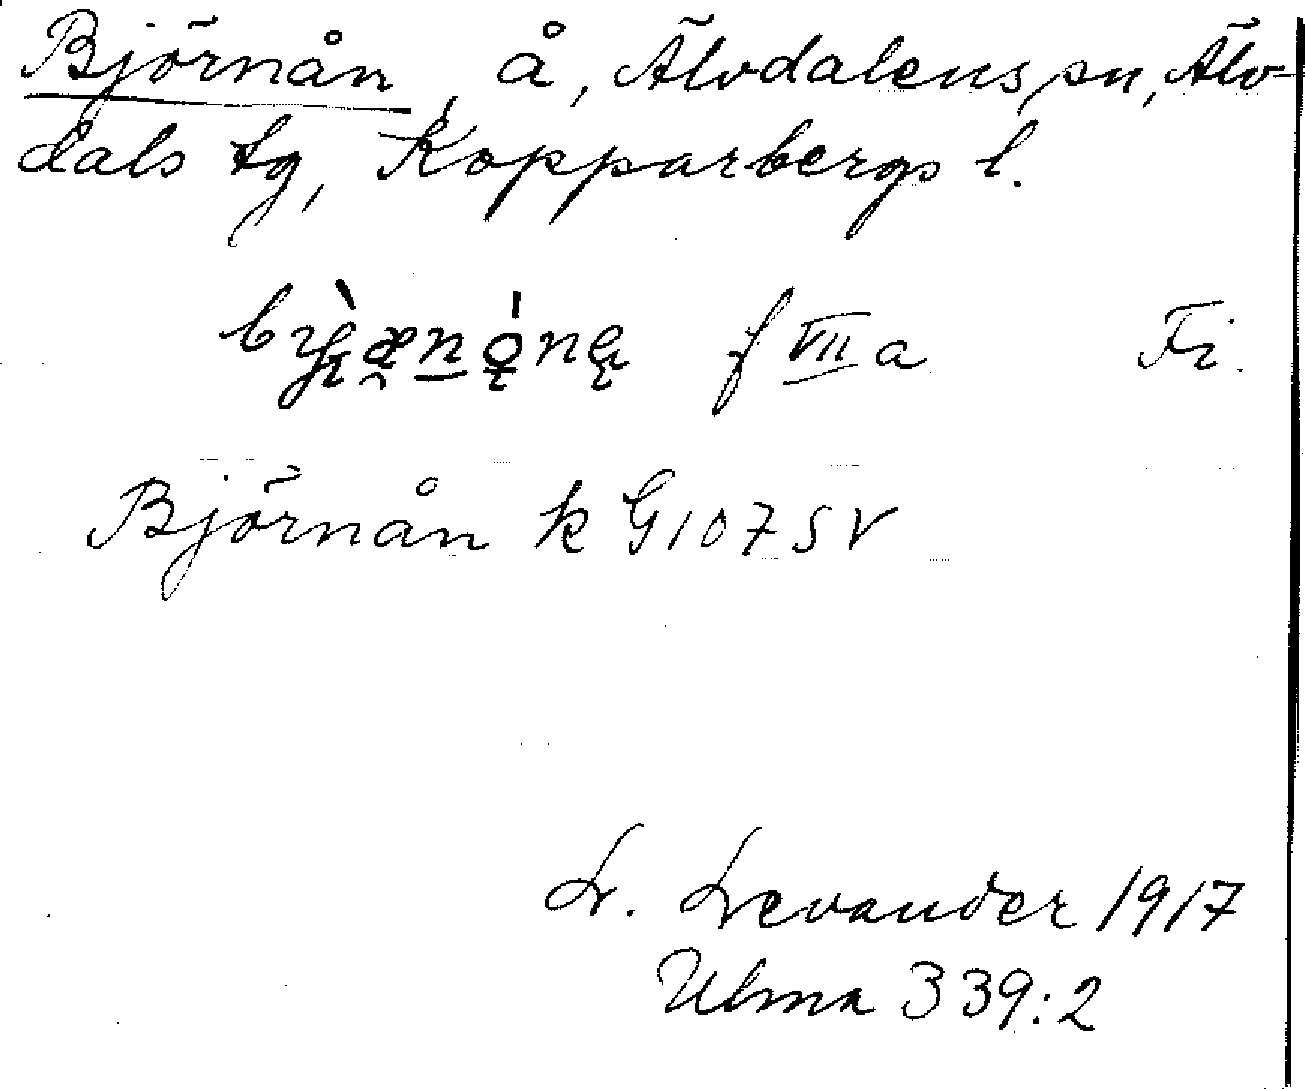 Björnån, å, Älvdalens sn, Älv-
dals tg, Kopparbergs l.
f VII a Fi.
Björnån k G107 SV
L. Levander 1917
Ulma 339:2